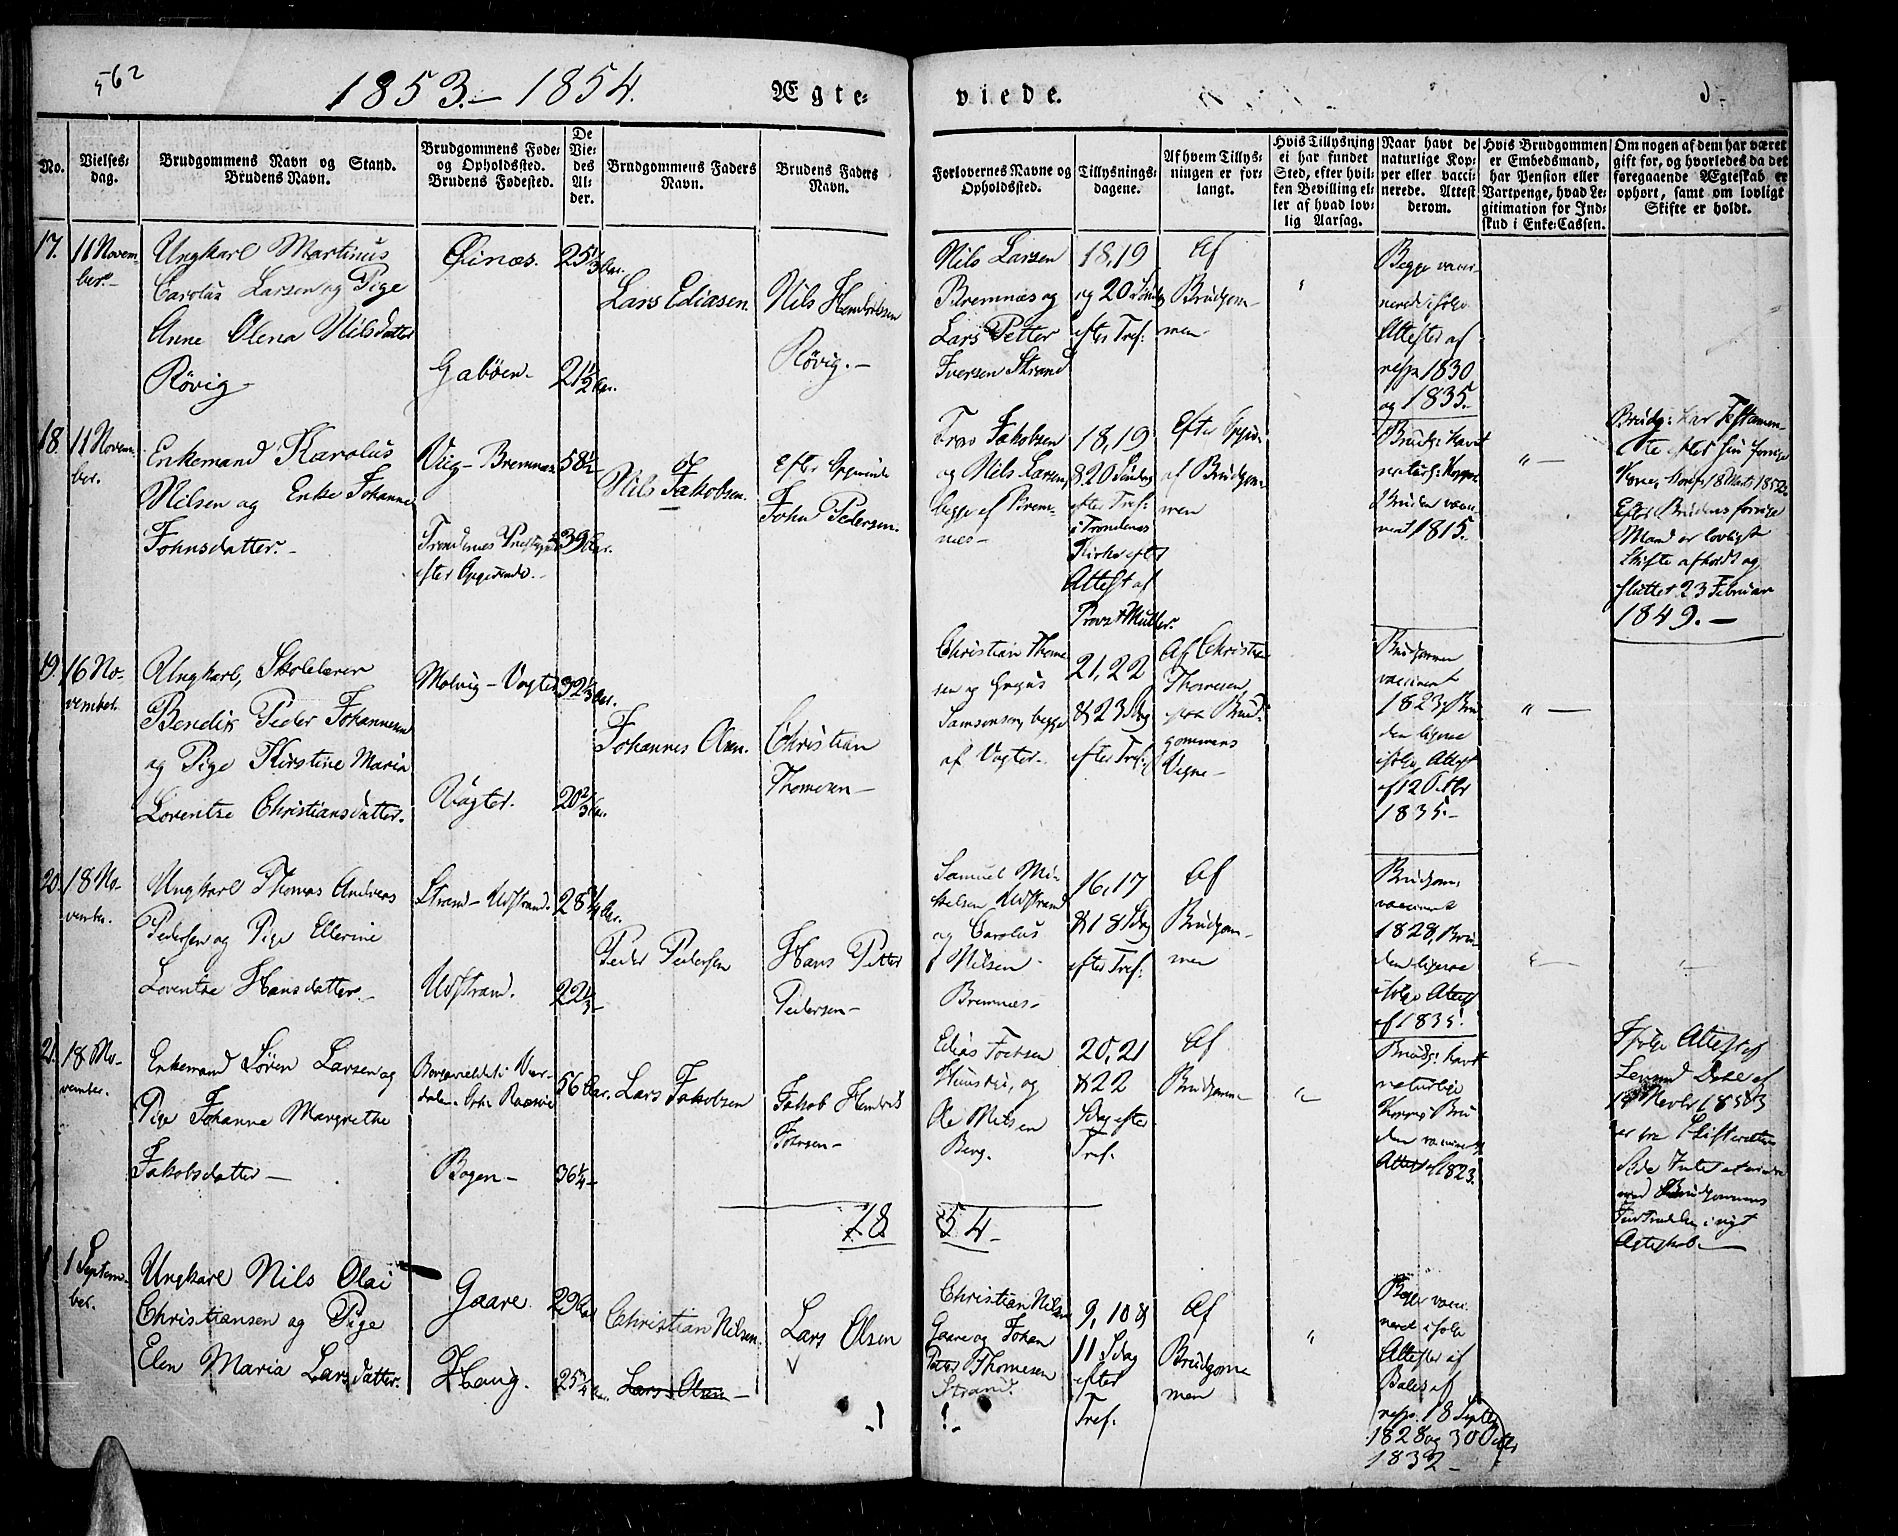 562
1853.– 1854.
Ægte-
viede.
No.
Vielses-
dag.
Brudgommens Navn og Stand.
Brudens Navn.
Brudgommens Føde-
og Opholdssted.
Brudens Fødested.
De
Vie-
des
Al-
der.
Brudgommens Faders
Navn.
Brudens Faders
Navn.
Forlovernes Navne og
Opholdssted.
Tillysnings-
dagene.
Af hvem Tillys-
ningen er for-
langt.
Hvis Tillysning
ei har fundet
Sted, efter hvil-
ken Bevilling el-
ler af hvad lov-
lig Aarsag.
Naar havt de
naturlige Kop-
per eller vacci-
nerede. Attest
derom.
Hvis Brudgommen
er Embedsmand,
har Pension eller
Vartpenge, hvad Le-
gitimation for Ind-
skud i Enke-Cassen.
Om nogen af dem har været
gift før, og hvorledes da det
foregaaende Ægteskab er
ophørt, samt om lovligt
Skifte er holdt.
17.
11 Novem-
ber.–
Ungkarl Martinus
Carolus Larsen og Pige
Anne Olena Nilsdatter
Røvig
Øinæs.
Gabøen.
25 1/3 Aar.
21 1/2 Aar.
Lars Ediasen.
Nils Hendriksen
Røvig.–
Nils Larsen
Bremnæs og
Lars Petter
Iversen Strand
18, 19
og 20 Søndag
efter Tref:
Af
Brudgom-
men
Begge vacci-
nerede ifølge
Attester af
resp. 1830
og 1835.
18.
11 Novem-
ber.
Enkemand Karolus
Nilsen og Enke Johanne
Johnsdatter.–
Viig – Bremnæs
Trondenes Præstegjeld
efter Opgivende.–
58 1/2
39 Aar.
Nils Jakobsen.
Efter Opgivende
John Pedersen.
Jakobsen
og Nils Larsen,
begge af Brem-
næs–
18, 19
& 20 Søndag
efter Tref:
i Trondenes
Kirke efter
Attest af
Provst Müller.
Efter Opgiv:
af Brudgom-
men
Brudg: havt
naturl: Kopper
Bruden vacci-
neret 1815.
"–
Brudg: har Testamen-
te efter sin forrige
Kone,
Efter Brudens forrige
Mand er lovligt
Skifte afholdt og
sluttet 23 Februar
1849.–
19.
16 No-
vember.
Ungkarl, Skolelærer
Benedik Peder Johannesen
og Pige Kirstine Maria
Lorentse Christiansdatter.
Molvig – Vogter
Vogter.
32 1/3 Aar.
20 2/3 Aar.
Johannes Olsen.
Christian
Thomesen–
Christian Thome-
sen og
Samsonsen, begge
af Vogter–
21, 22
& 23 Sdag
efter Tref:
Af Christian
Thomesen
paa Brud-
gommens
Vegne–
Brudgommen
vaccineret
1823, Bru-
den ligesaa
ifølge Attest
af 12 Octbr
1835.–
"–
20.
18 No-
vember.
Ungkarl Thomas Andreas
Pedersen og Pige Ellerine
Lorentse Hansdatter.–
Strand – Udstrand.
Udstrand.
28 3/4 Aar.
22 1/3–
Peder Pedersen
Hans Petter
Pedersen–
Samuel Mi-
kelsen Udstrand
og Carolus
Nilsen
Bremnæs–
16, 17
& 18 Sdag
efter Tref:
Af
Brudgom-
men
Brudgom:
vaccineret
1828, Bru-
den ligesaa
ifølge Attest
af 1835.
"–
21.
18 No-
vember.
Enkemand Søren Larsen og
Pige Johanne Margrethe
Jakobsdatter–
Bogen–
56 Aar.
36 1/4–
Lars Jakobsen
Jakob Hendrik
Johnsen–
Edias
og
Ole Nilsen
Berg.
20, 21
& 22
Sdag efter
Tref.
Af
Brudgomm
"–
Brudg: havt
naturlige
Kopper, Bru-
den vaccineret
Attest af 1823.
Ifølge Attest af
Lensmd Dahl af
Novbr 1853
er fra Skifterettens
Side Intet at erindre
mod Brudgommens
Indtrædelse i nyt
Ægteskab.–
18
54–
1
1 Septem-
ber.
Ungkarl Nils Olai
Christiansen og Pige
Elen Maria Larsdatter.
Gaare.
Haug.
29 Aar
25 3/4 Aar.
Christian Nilsen.
Lars Olsen–
Lars Olsen
Christian Nilsen
Gaare og Johan
Thomesen
Strand.
9, 10 &
11 Sdag
efter
Tref.
Af
Brudgom-
men
"
Begge vacci-
neret ifølge
Attester af
resp. 18 Septbr
1828 og 30 Octbr
1832–
1
1–